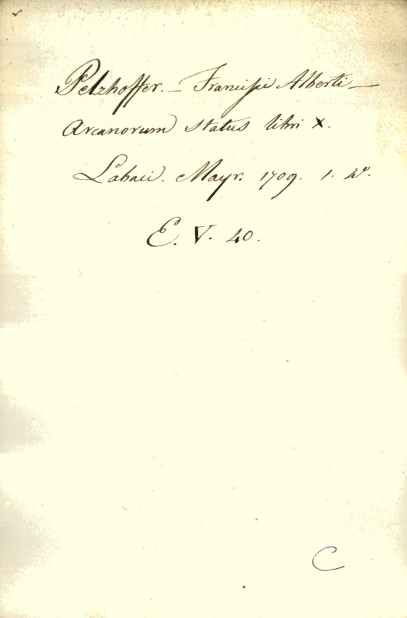 Pelzhoffer. – Francisci Alberti –
Arcanorum status libri X.
Labaci. Mayr. 1709. 1. 4º.
E. V. 40.
C